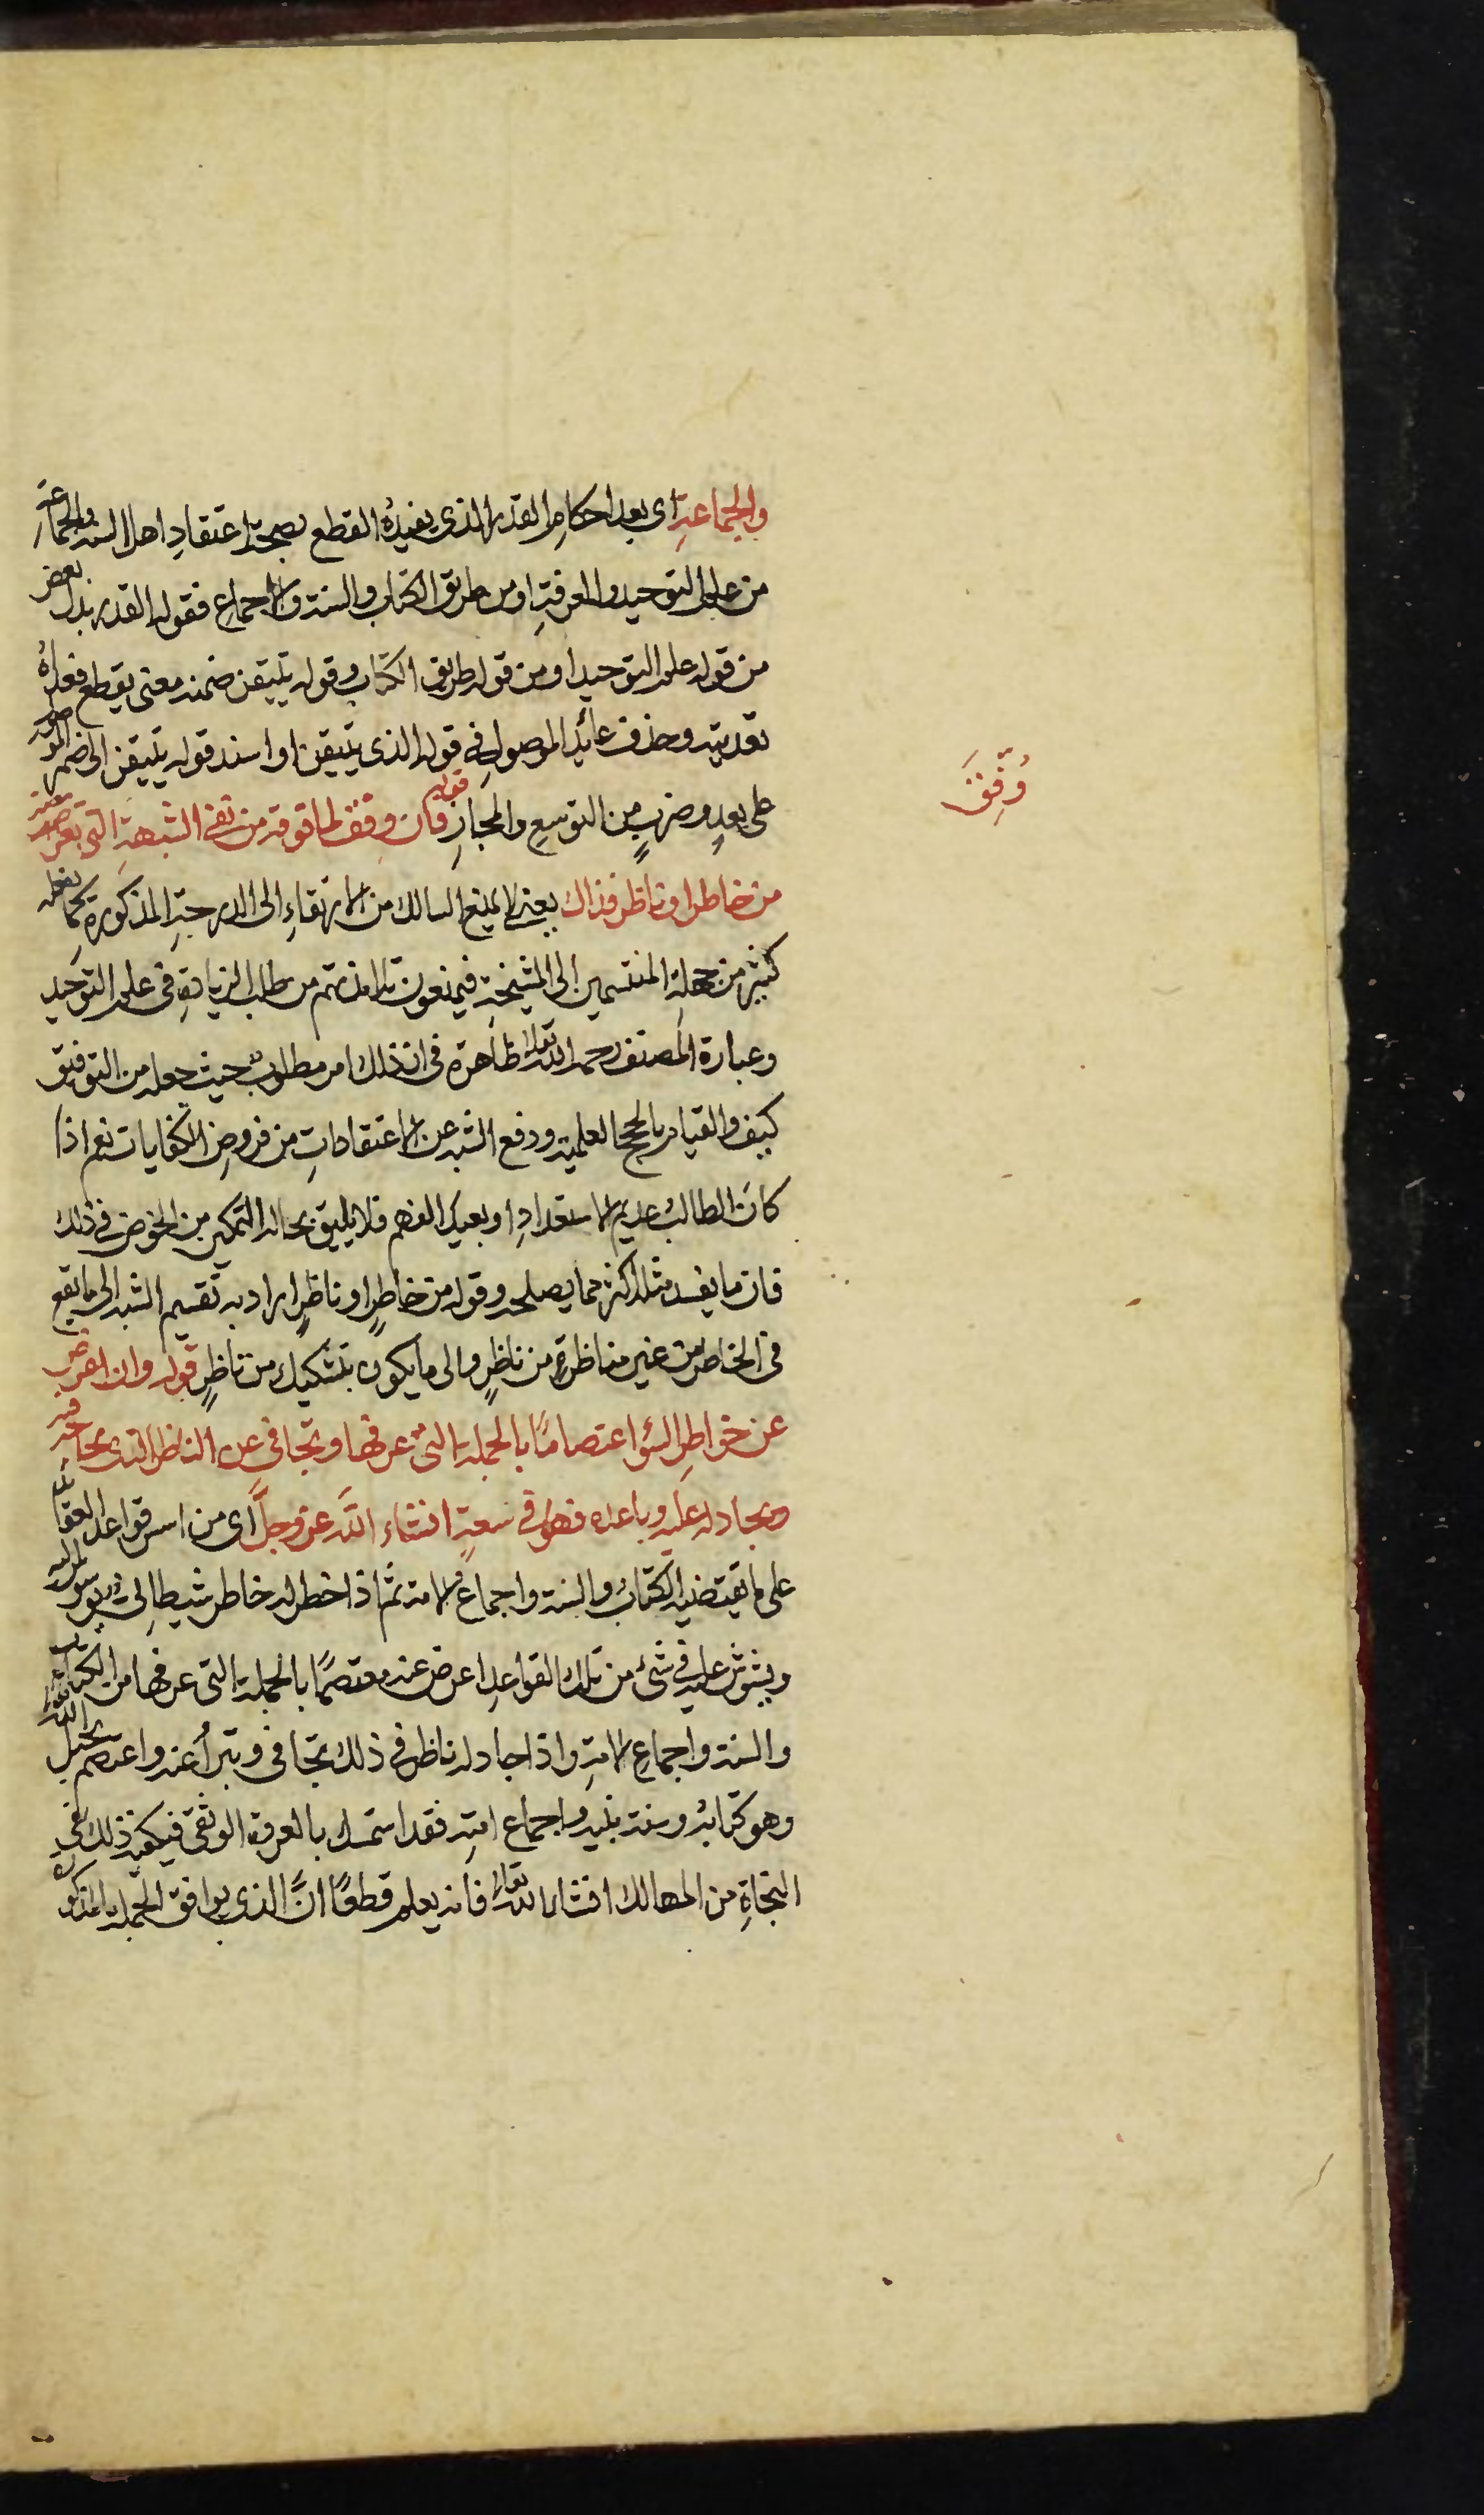 والجماعةِ اى بعد احكامِ القدر الذى يفيدُه القطع بصحةِ اعتقادِ اهل السنة والجماعة
من علم التوحيد والمعرفةِ او من طريق الكتاب والسنة والاجماعِ فقوله القدر بدل بعض
من قوله علم التوحيد او من قوله طريق الكتاب وقوله يتيقن ضمنه معنى يقطع فعداهُ
تعديته وحذف عائد الموصولِ فى قوله الذى يتيقن او اسند قوله يتيقن الى ضمير الموصول
على بعدٍ وضربٍ من التوسعِ والمجازِ قوله فان وفق لما فوقه من نفى الشبهةِ التى تعرض
من خاطر او ناظر فذاك يعنى لا يمنع السالك من الارتقاءِ الى الدرجةِ المذكورةِ كما يفعله
كثير من جهلة المنتسمين الى المشيخةِ فيمنعون تلامذتهم من طلب الزيادةِ فى علم التوحيد
وعبارة المصنف رحمه الله تعالى ظاهرة فى ان ذلك امر مطلوب حيث جعله من التوفيق
كيف والقيام بالحجج العلمية ودفع الشبه عن الاعتقاداتِ من فروضِ الكفايات نعم اذا
كان الطالب عديم الاستعدادِ او بعيد الفهم فلا يليق بحاله التمكين من الخوض فى ذلك
فان ما يفسد مثله اكثر مما يصلحه وقوله من خاطرٍ او ناظرٍ اراد به تقسيم الشبه الى ما يقع
فى الخاطر من غير مناظرةٍ من ناظرٍ والى ما يكون بتشكيك من ناظرٍ قوله وان اعرض
عن خواطرِ السؤ اعتصامًا بالجملة التى عرفها وتجافى عن الناظر الذى يحاجه
ويجادله عليه وباعده فهو فى سعةٍ انشاء الله عز وجلَّ اى من اسس قواعد العقائد
على ما يقتضيه الكتابُ والسنة واجماع الامة ثم اذا خطر له خاطر شيطانى يوسوس له
ويشوش عليه فى شئ من تلك القواعدِ اعرض عنه معتصمًا بالجملة التى عرفها من الكتاب
والسنة واجماعِ الامةِ واذا جادله ناظر فى ذلك تجافى وتبرأ عنه واعتصم بحبل الله تعالى
وهو كتابه وسنة نبيه واجماع امتهِ فقد استمسك بالعروة الوثقى فيكفيه ذلك فى
النجاةِ من المهالك انشاء الله تعالى فانه يعلم قطعًا انَّ الذى يوافق الجملة المذكورة
وُفِّقَ